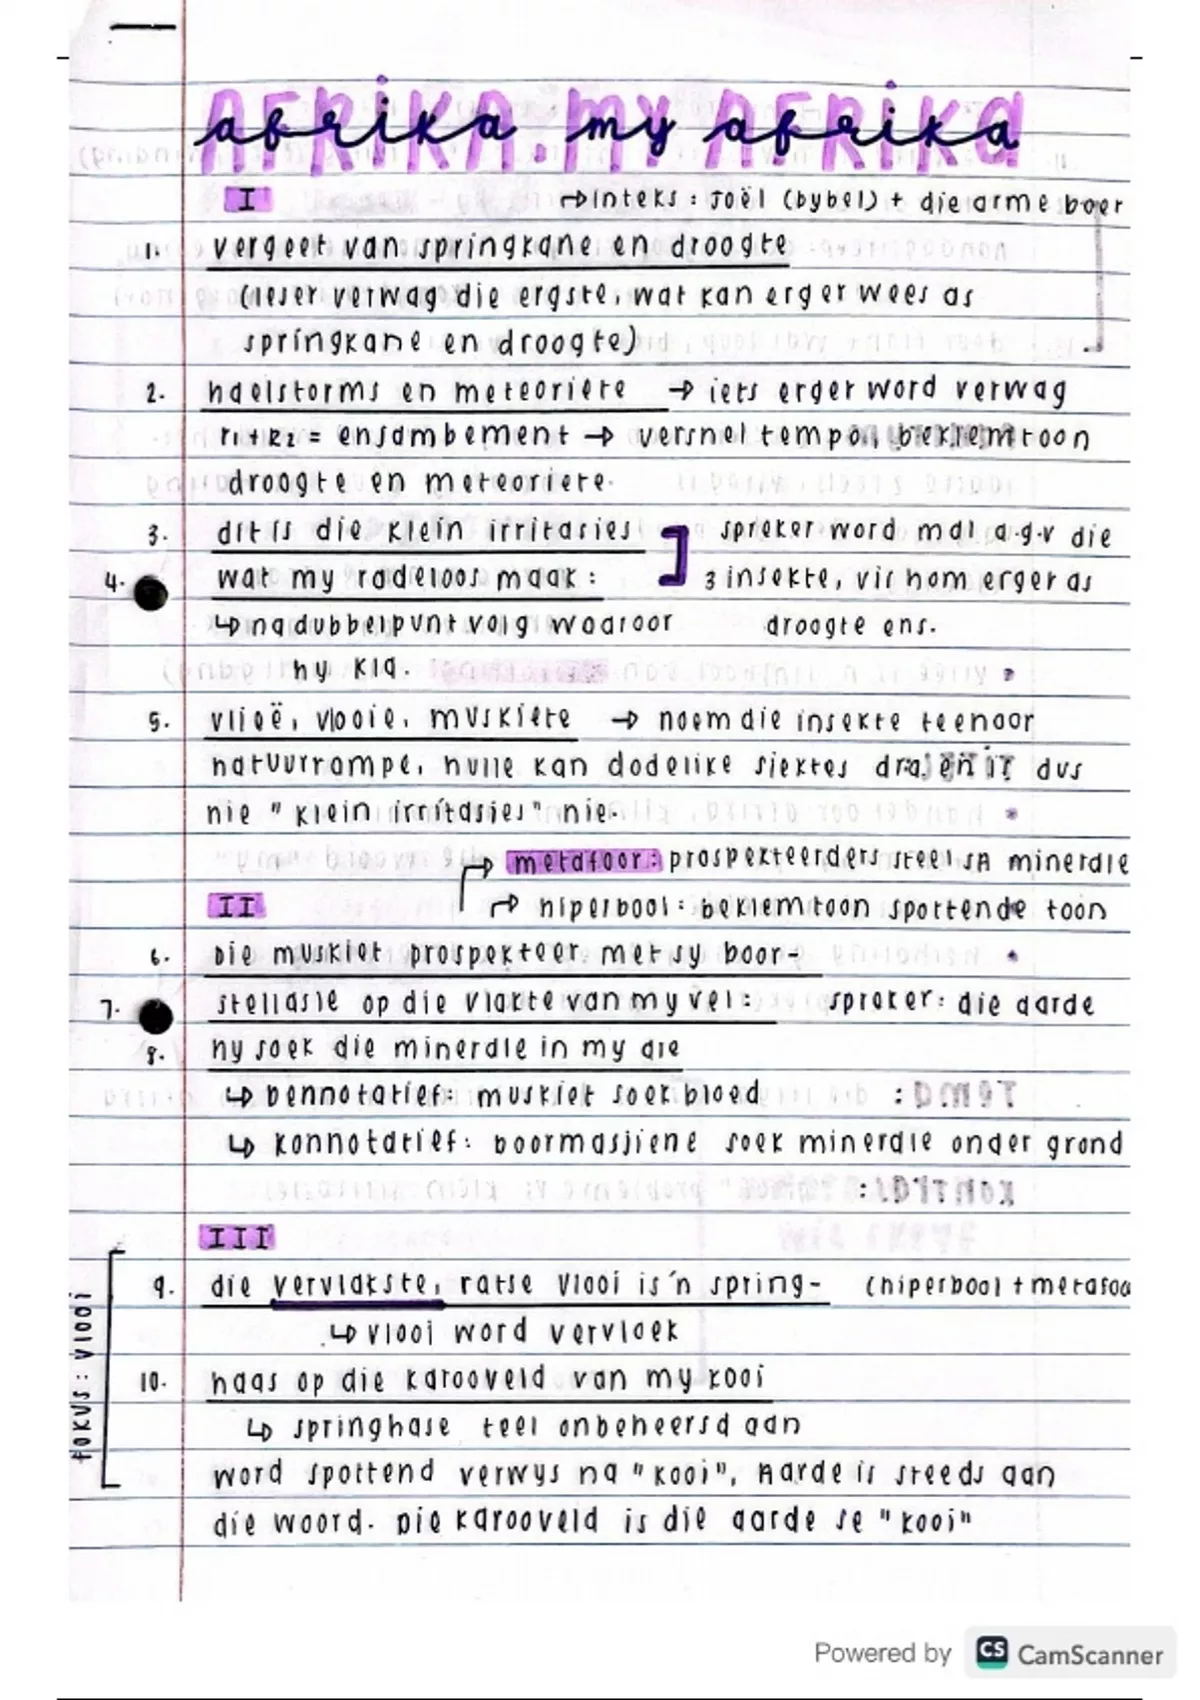 afrika my afrika
I →inteks: Joël (bybel) + die arme boer
1. vergeet van springkane en droogte
(leser verwag die ergste, wat kan erger wees as
springkane en droogte)
2. haelstorms en meteoriete → iets erger word verwag
r1+R2 = ensambement → versnel tempo, beklemtoon
droogte en meteoriete.
3. dit is die klein irritasies ] spreker word mal a.g.v die
4. wat my radeloos maak: 3 insekte, vir hom erger as
↳ na dubbelpunt volg waaroor droogte ens.
hy kla.
5. vlieë, vlooie, muskiete → noem die insekte teenoor
natuurrampe, hulle kan dodelike siektes dra, en is dus
nie "klein irritasies" nie.
→ metafoor: prospekteerders steel SA minerale
II → hiperbool: beklemtoon spottende toon
6. Die muskiet prospekteer met sy boor-
7. stellasie op die vlakte van my vel: spreker: die aarde
8. hy soek die minerale in my are
↳ dennotatief: muskiet soek bloed
↳ konnotatief: boormasjiene soek minerale onder grond
III
fokus: vlooi
9. die vervlakste, ratse vlooi is 'n spring- (hiperbool + metafoo
↳ vlooi word vervloek
10. haas op die karooveld van my kooi
↳ springhase teel onbeheersd aan
word spottend verwys na "kooi", Aarde is steeds aan
die woord. Die karooveld is die aarde se "kooi"
Powered by CS CamScanner